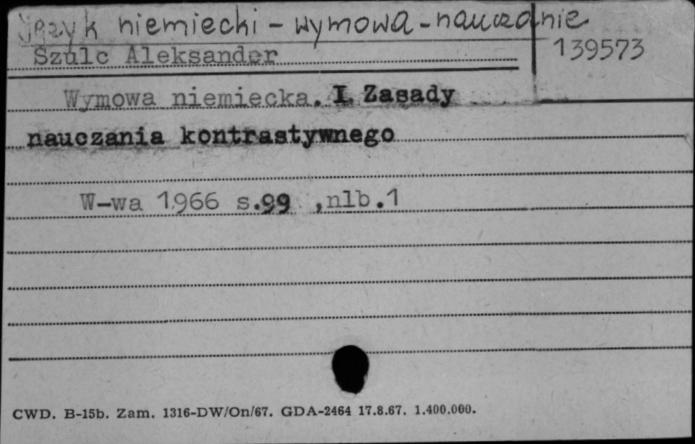 język niemiecki - wymowa - nauczanie
Szulc Aleksander
139573
Wymowa niemiecka. I Zasady
nauczania kontrastywnego
W-wa 1966 s.99 ,nlb.1
CWD. B-15b. Zam. 1316-DW/On/67. GDA-2464 17.8.67. 1.400.000.